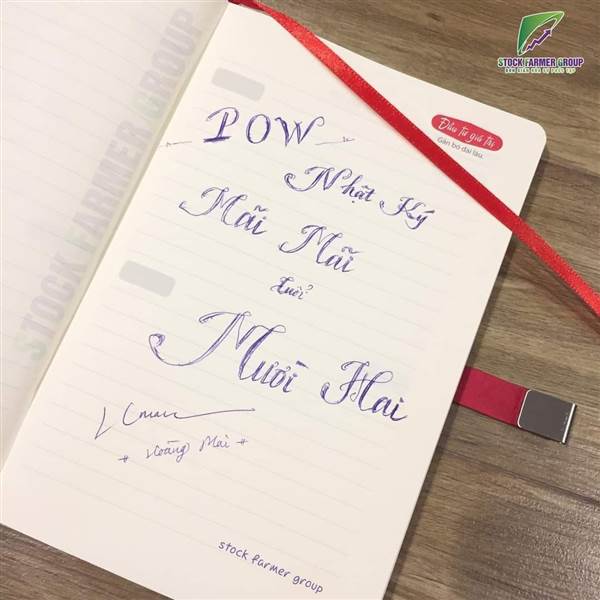 STOCK FARMER GROUP
Đầu tư giá trị
Gắn bó dài lâu
POW
Nhật Ký
Mãi Mãi
tuổi
Mười Hai
# Hoàng Mai #
stock farmer group
STOCK FARMER GROUP